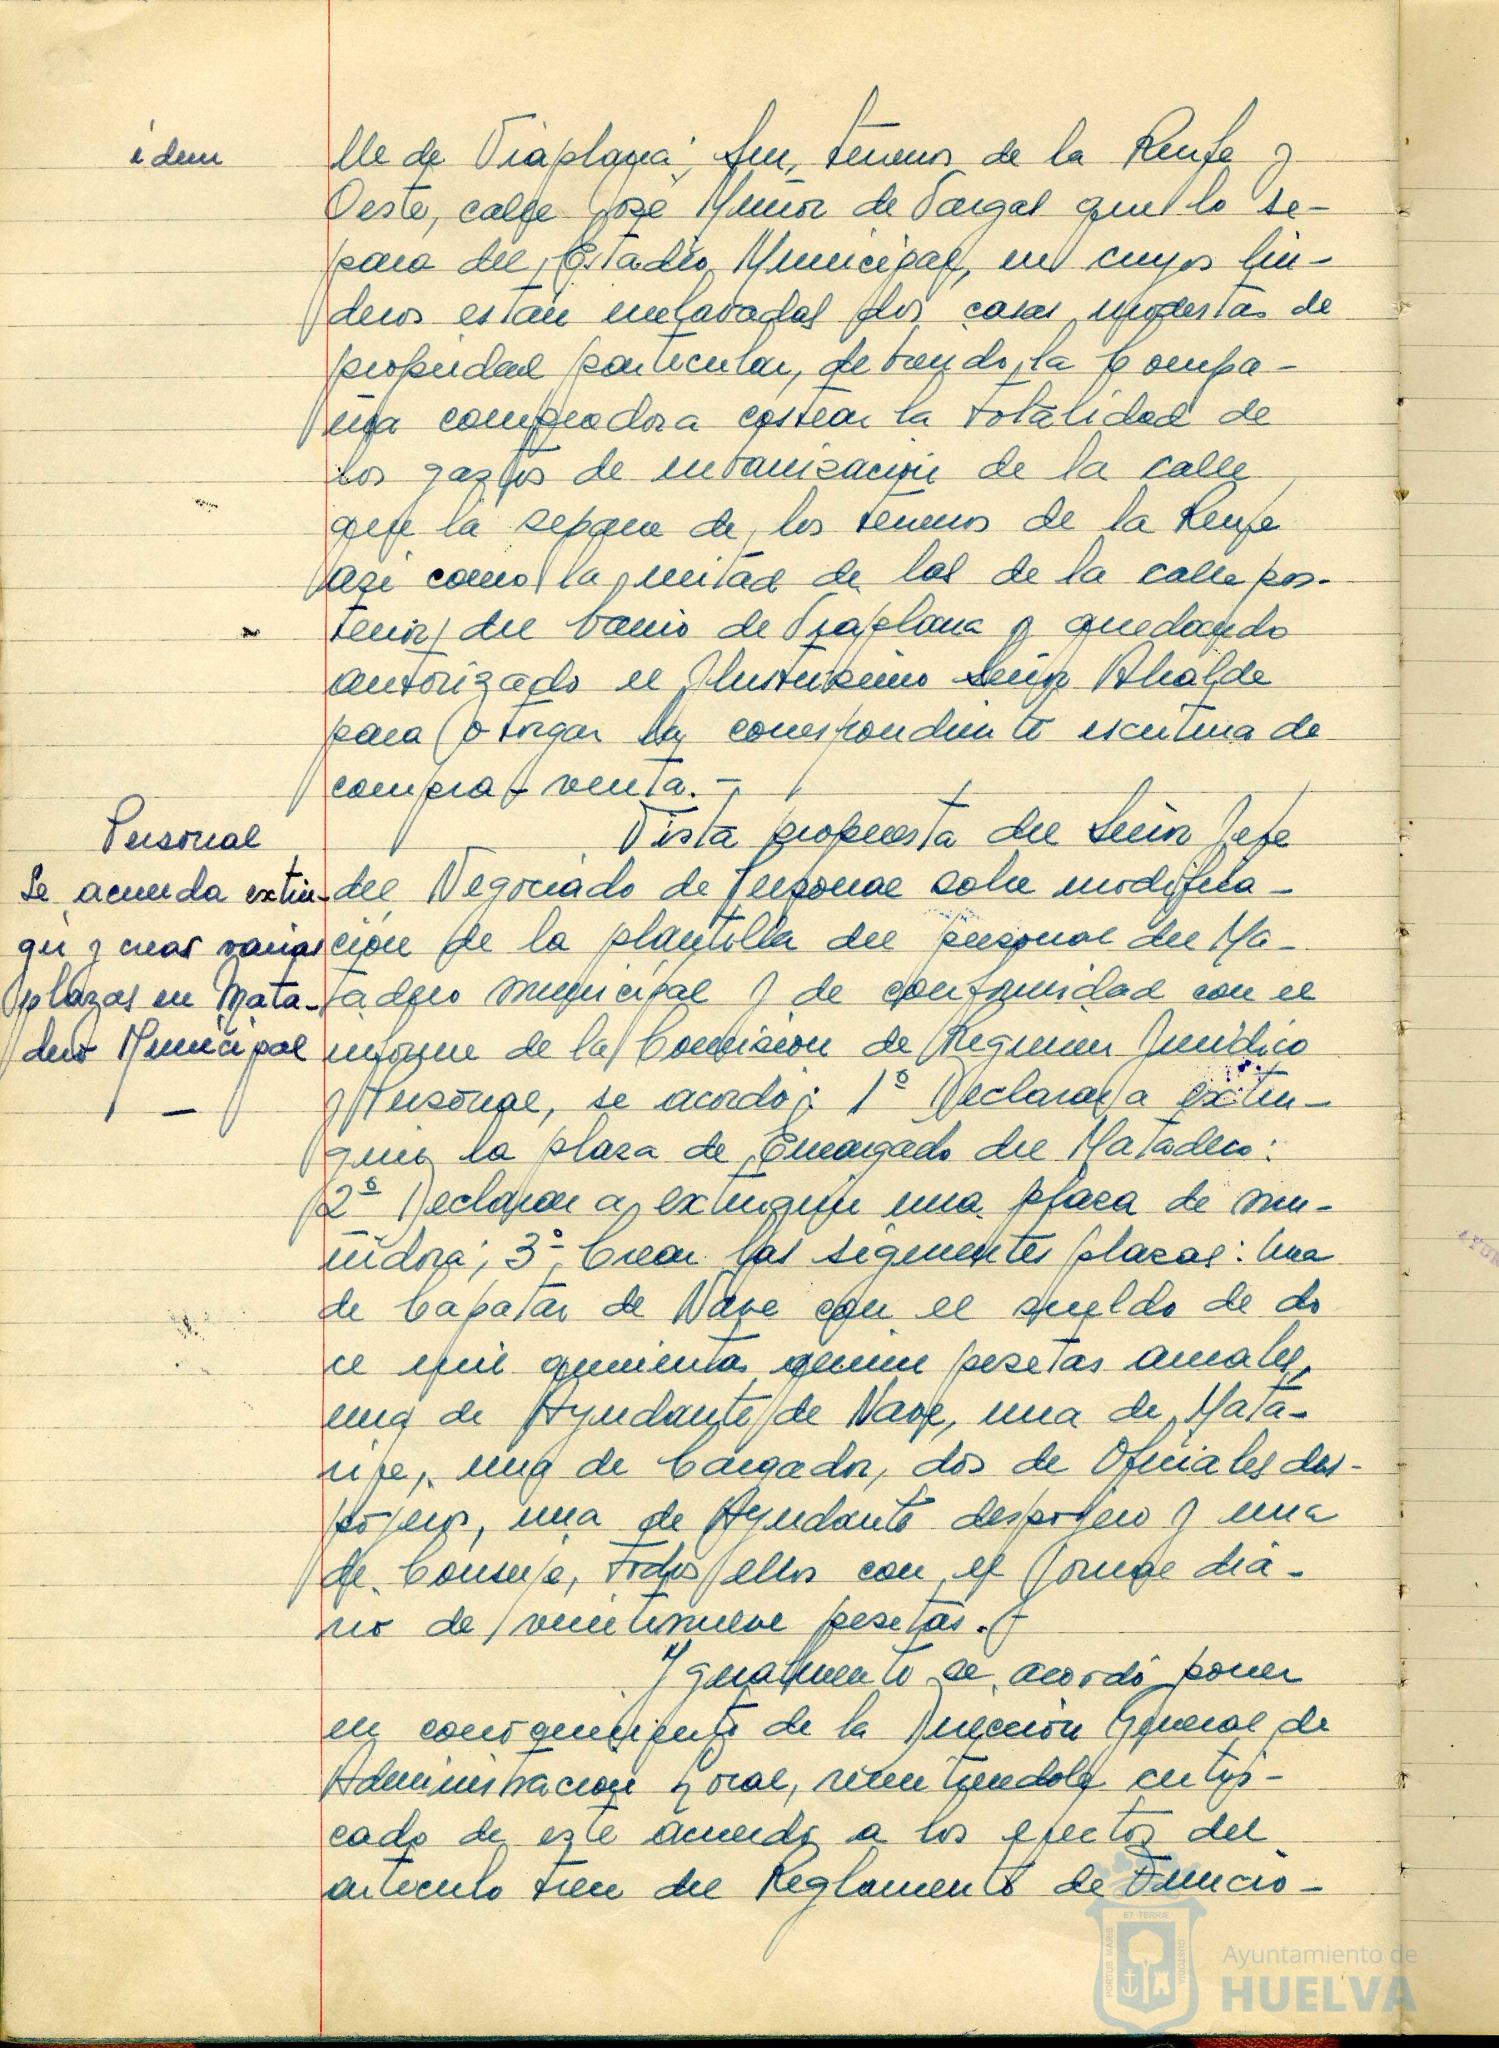 idem
lle de Viaplana; Sur, terrenos de la Renfe y
Oeste, calle José Muñoz de Vargas que lo se-
para del Estadio Municipal, en cuyos lin-
deros están enclavadas dos casas modestas de
propiedad particular, debiendo la Compa-
ñia compradora costear la totalidad de
los gastos de urbanización de la calle
que la separa de los terrenos de la Renfe
asi como la mitad de los de la calle pos-
terior del barrio de Viaplana y quedando
autorizado el Ilustrisimo Señor Alcalde
para otorgar la correspondiente escritura de
compra-venta.-
Personal
Se acuerda extin-
guir y crear varias
plazas en Mata-
dero Municipal
-
Vista propuesta del Señor Jefe
del Negociado de Personal sobre modifica-
ción de la plantilla del personal del Ma-
tadero municipal y de conformidad con el
informe de la Comisión de Regimen Juridico
y Personal, se acordó: 1º Declarar a extin-
guir la plaza de Encargado del Matadero:
2º Declarar a extinguir una plaza de mu-
ñidora; 3º Crear las siguientes plazas: Una
de Capataz de Nave con el sueldo de do
ce mil quinientas pesetas anuales,
una de Ayudante de Nave, una de Mata-
rife, una de Cargador, dos de Oficiales des-
pojeros, una de Ayudante despojero y una
de Conserje, todos ellos con el jornal dia-
rio de veintinueve pesetas.-
Igualmente se acordó poner
en conocimiento de la Dirección General de
Administración Local, remitiendole certifi-
cado de este acuerdo a los efectos del
articulo trece del Reglamento de Funcio-
PORTUS MARIS
ET TERRÆ
CUSTODIA
Ayuntamiento de
HUELVA